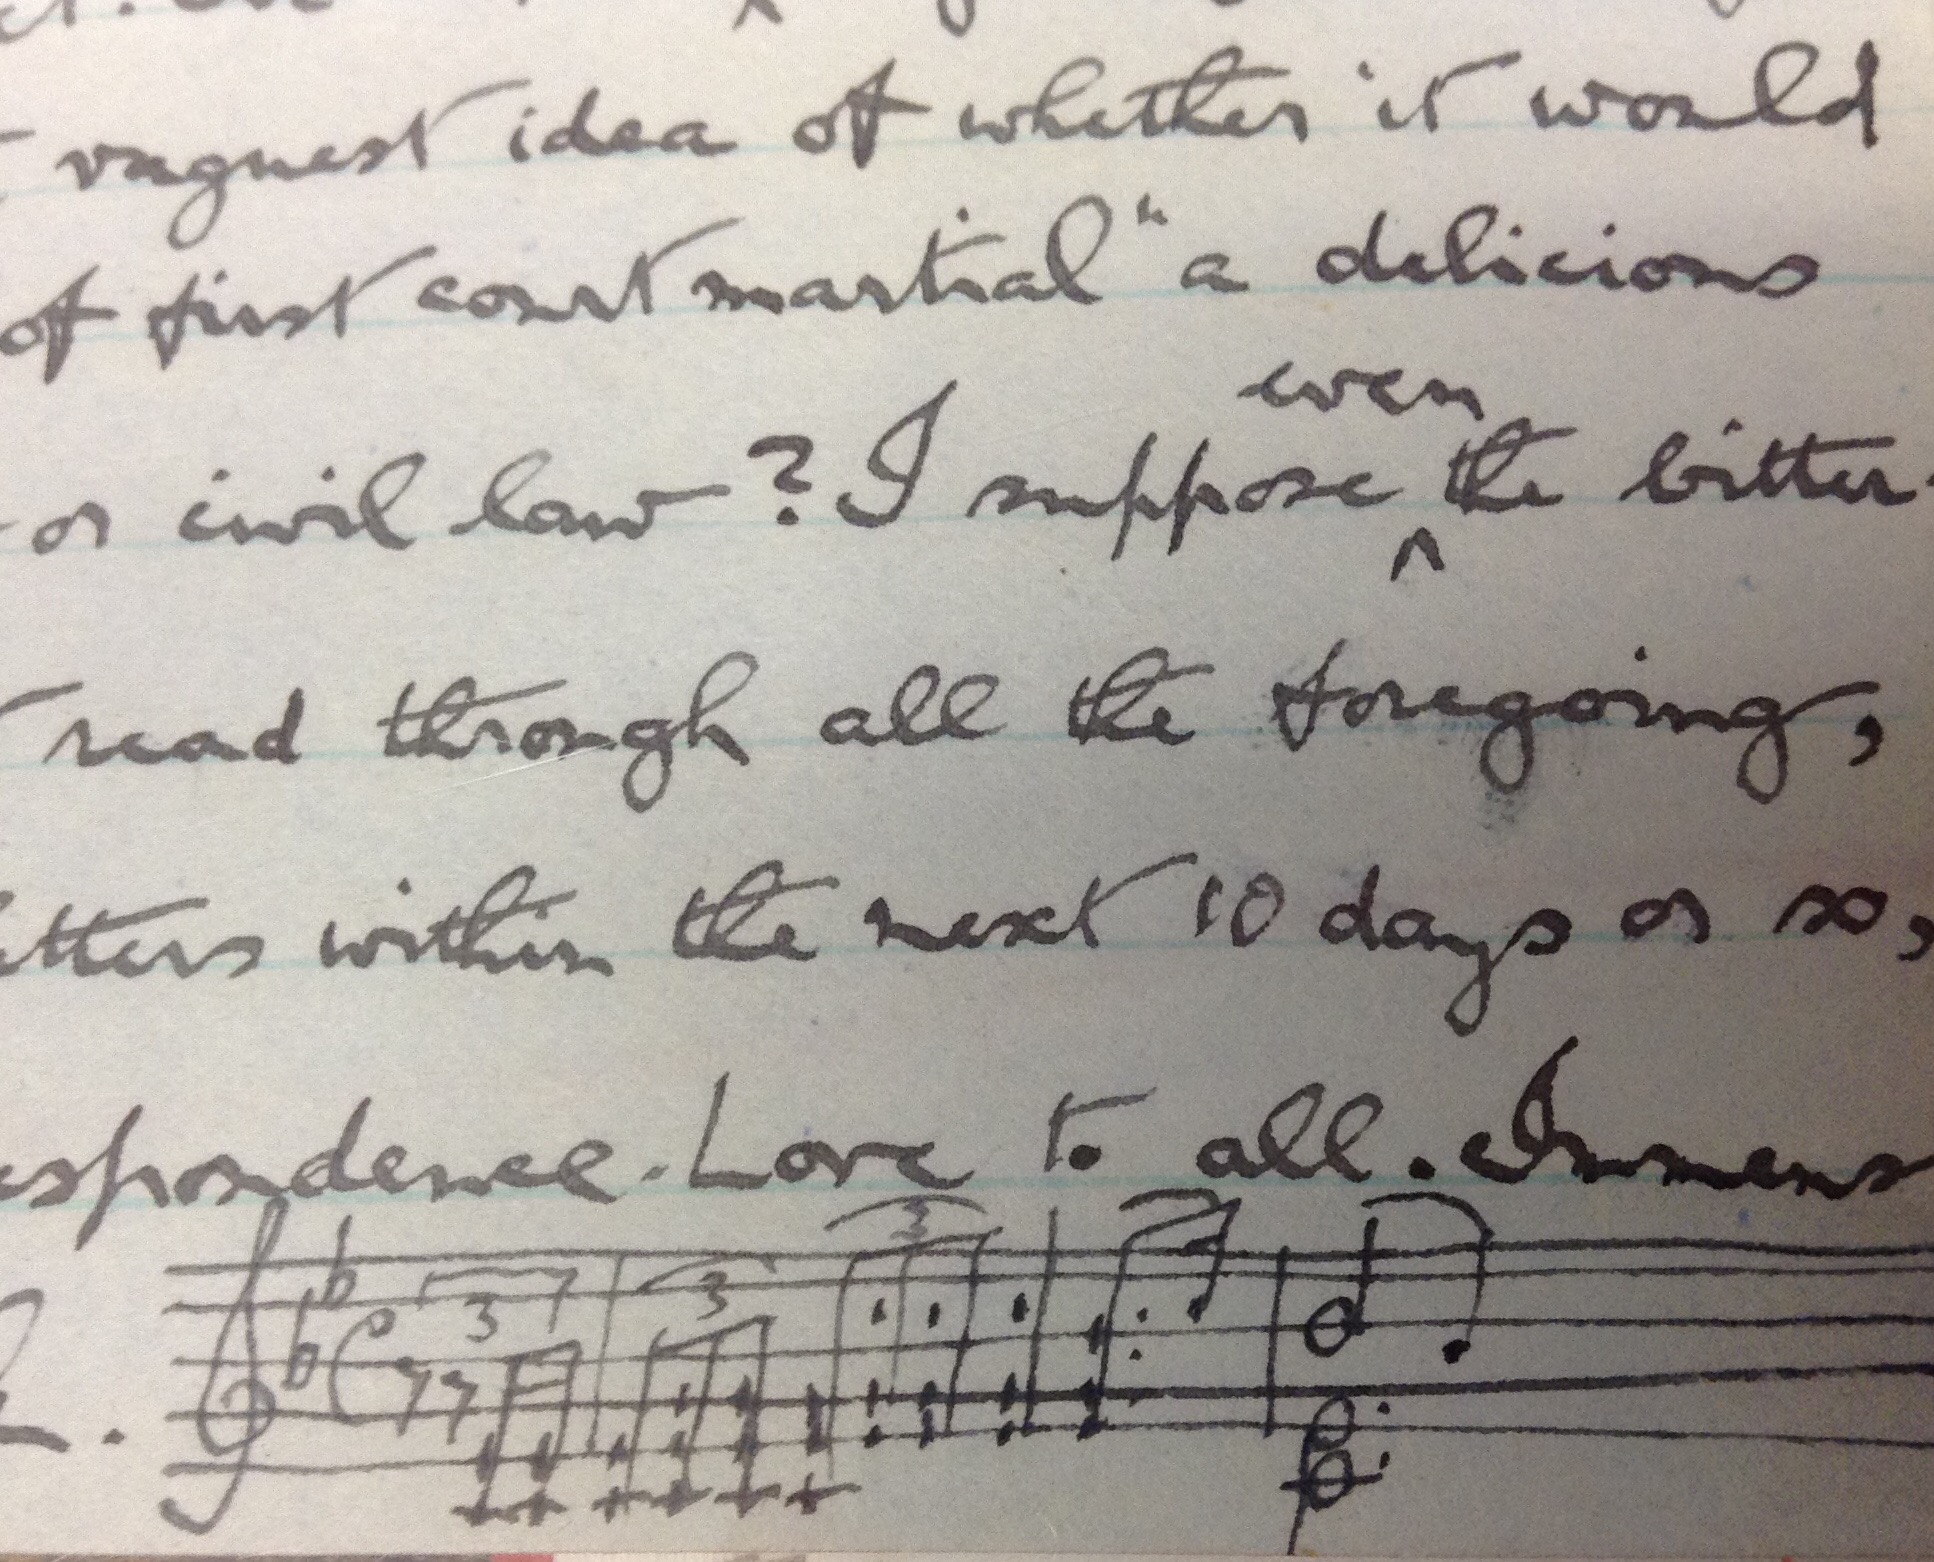 vaguest idea of whether it would
of first court martial" a delicious
or civil law? I suppose ^even the bitter-
read through all the foregoing,
etters within the next 10 days or so,
espondence. Love to all. Immens
3 3 3